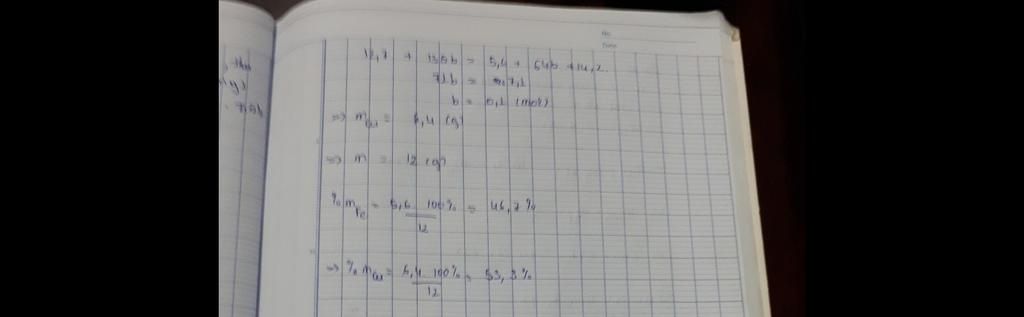 No
Date
12,7 + 135b = 5,6 + 64b + 14,2
71b = 7,1
b = 0,1 (mol)
=> mCu = 6,4 (g)
=> m = 12 (g)
% mFe = 5,6 . 100% / 12 = 46,7%
=> % mCu = 6,4 . 100% / 12 = 53,3%